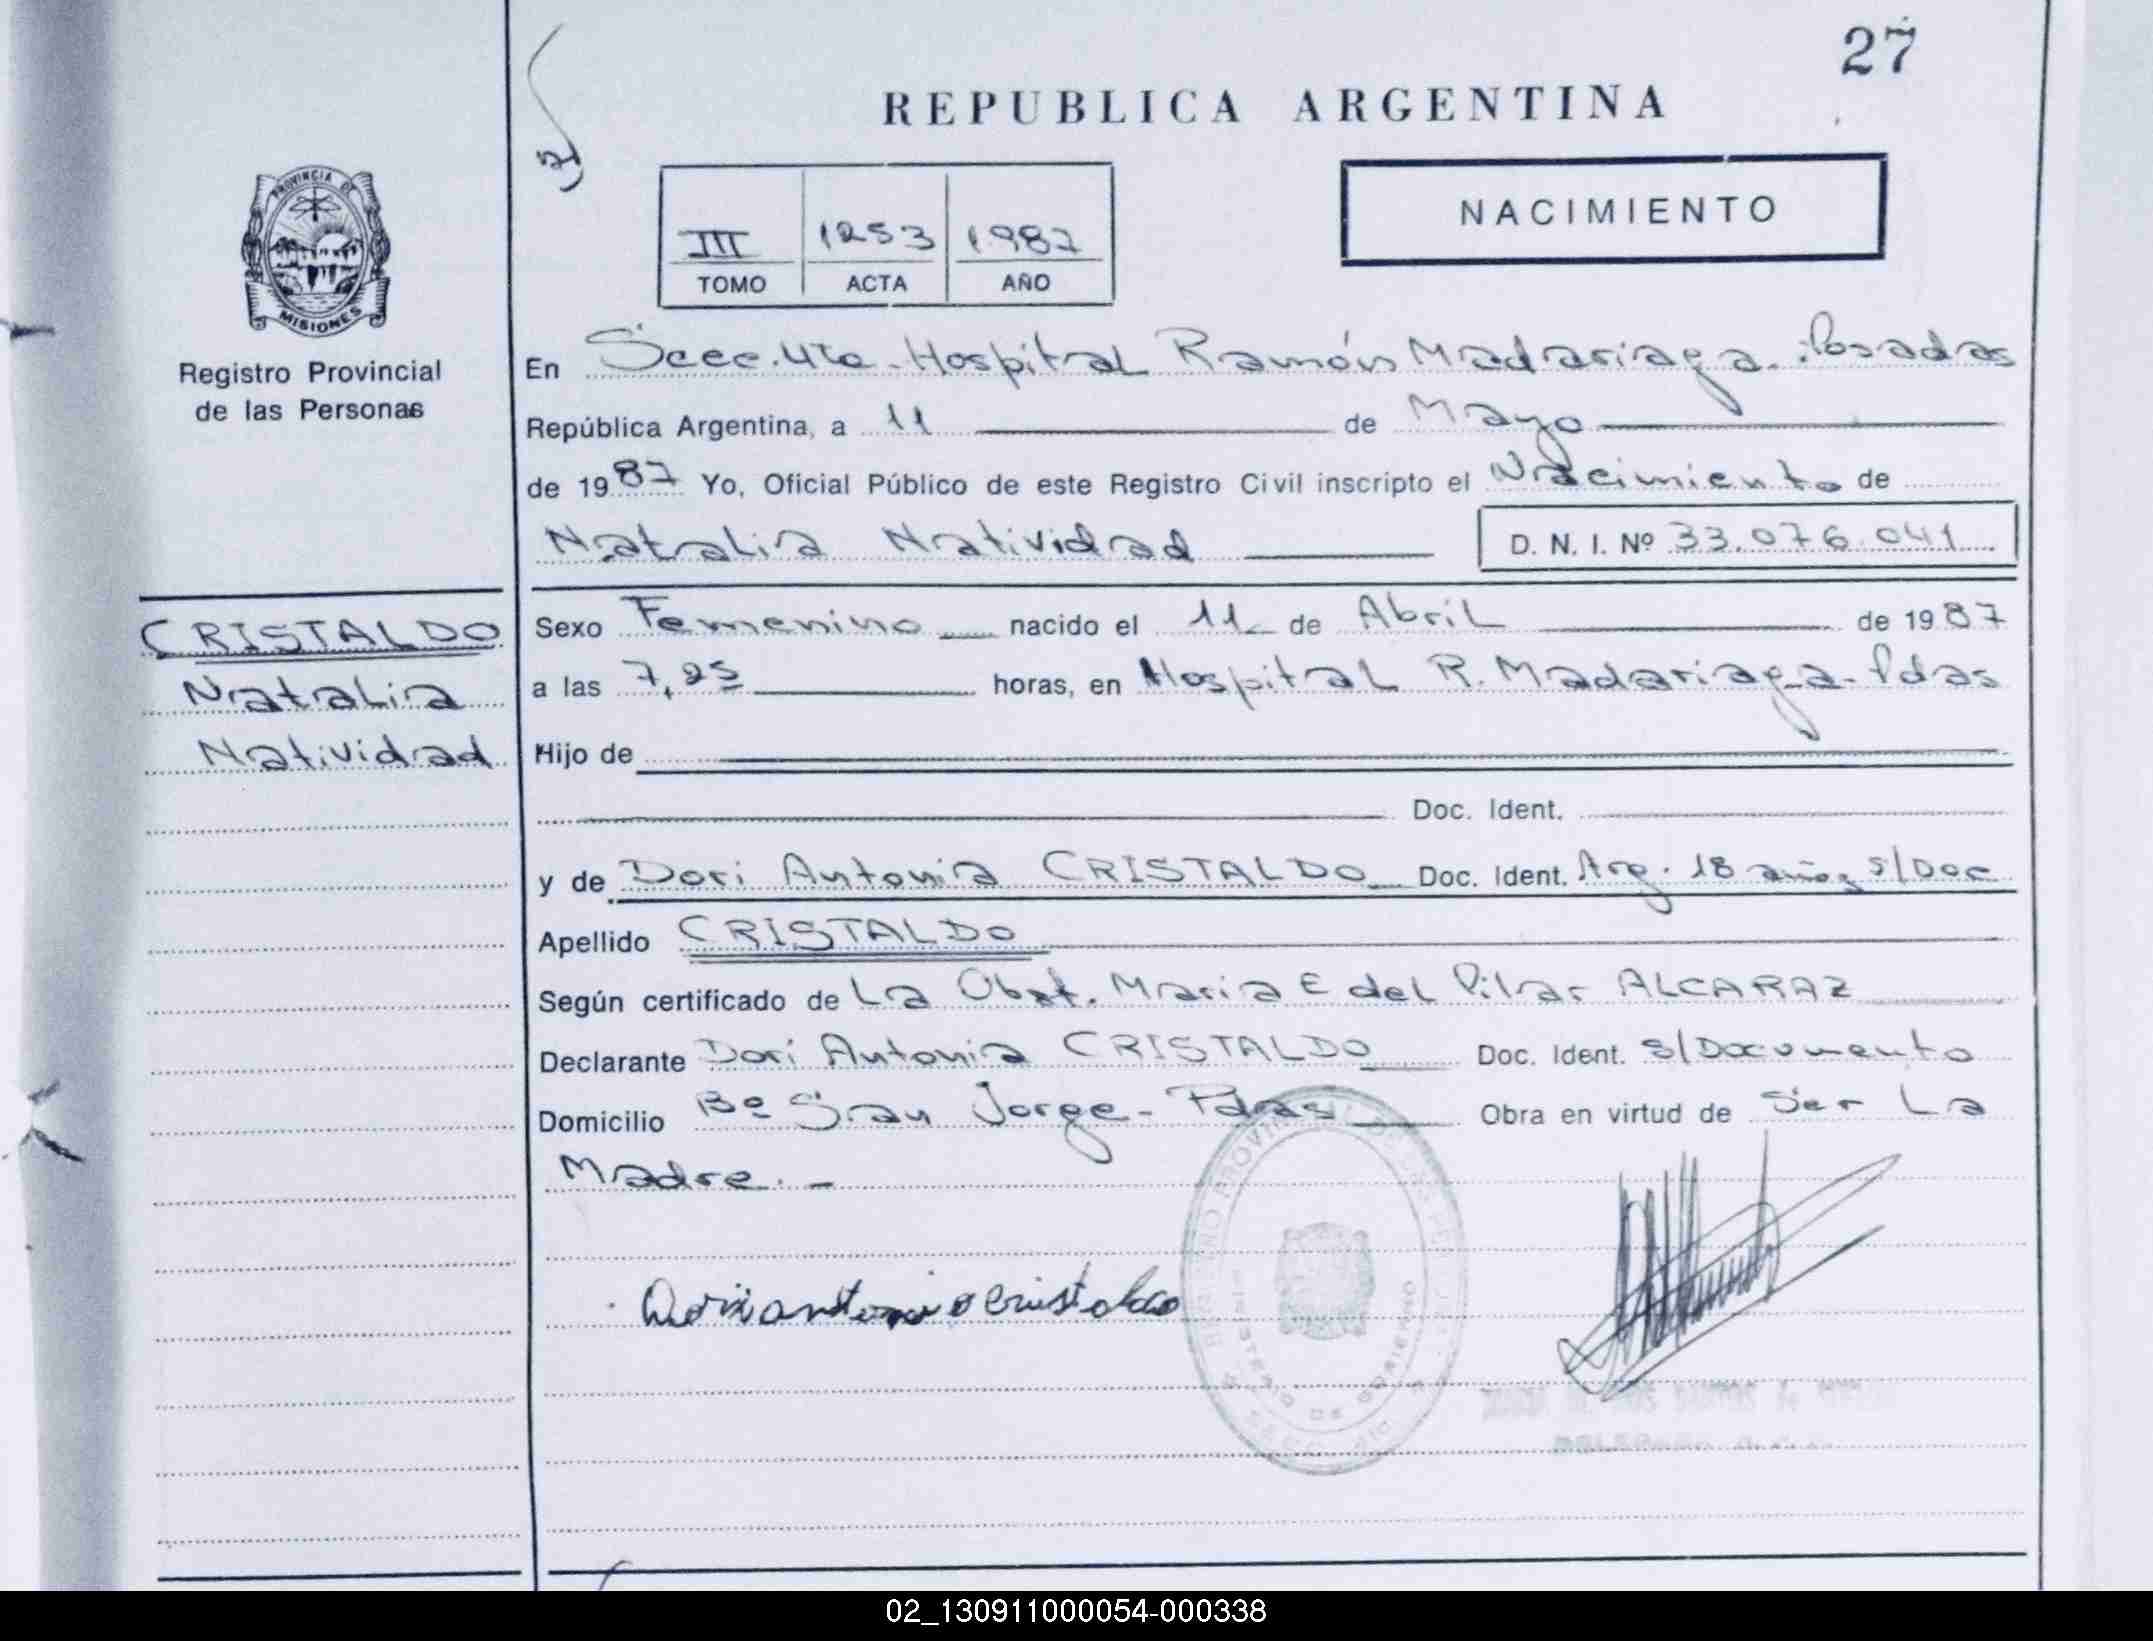 27
REPUBLICA ARGENTINA
NACIMIENTO
III 1253 1987
TOMO ACTA AÑO
PROVINCIA DE
MISIONES
Registro Provincial
de las Personas
En Secc. 4ta. Hospital Ramón Madariaga. Posadas
República Argentina, a 11 de Mayo
de 1987 Yo, Oficial Público de este Registro Civil inscripto el Nacimiento de
Natalia Natividad D. N. I. Nº 33.076.041
CRISTALDO
Natalia
Natividad
Sexo Femenino nacido el 11 de Abril de 1987
a las 7,25 horas, en Hospital R. Madariaga - Pdas
Hijo de
Doc. Ident.
y de Dori Antonia CRISTALDO Doc. Ident. Arg. 18 años s/Doc
Apellido CRISTALDO
Según certificado de La Obst. Maria E del Pilar ALCARAZ
Declarante Dori Antonia CRISTALDO Doc. Ident. s/Documento
Domicilio Bº San Jorge - Pdas Obra en virtud de Ser La
Madre. -
Dori antonia cristaldo
02_130911000054-000338